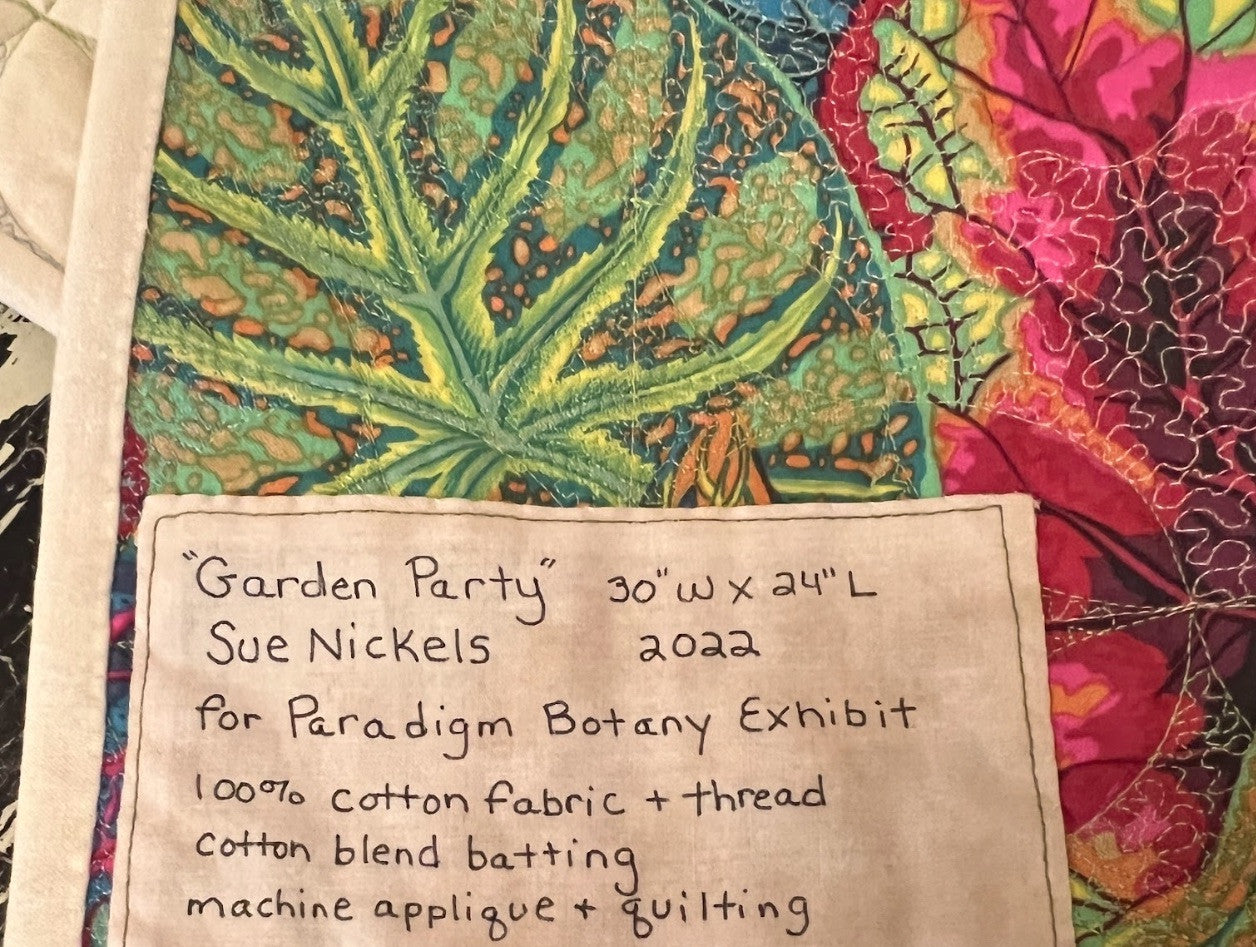 "Garden Party" 30"W X 24"L
Sue Nickels 2022
for Paradigm Botany Exhibit
100% cotton fabric + thread
cotton blend batting
machine applique + quilting